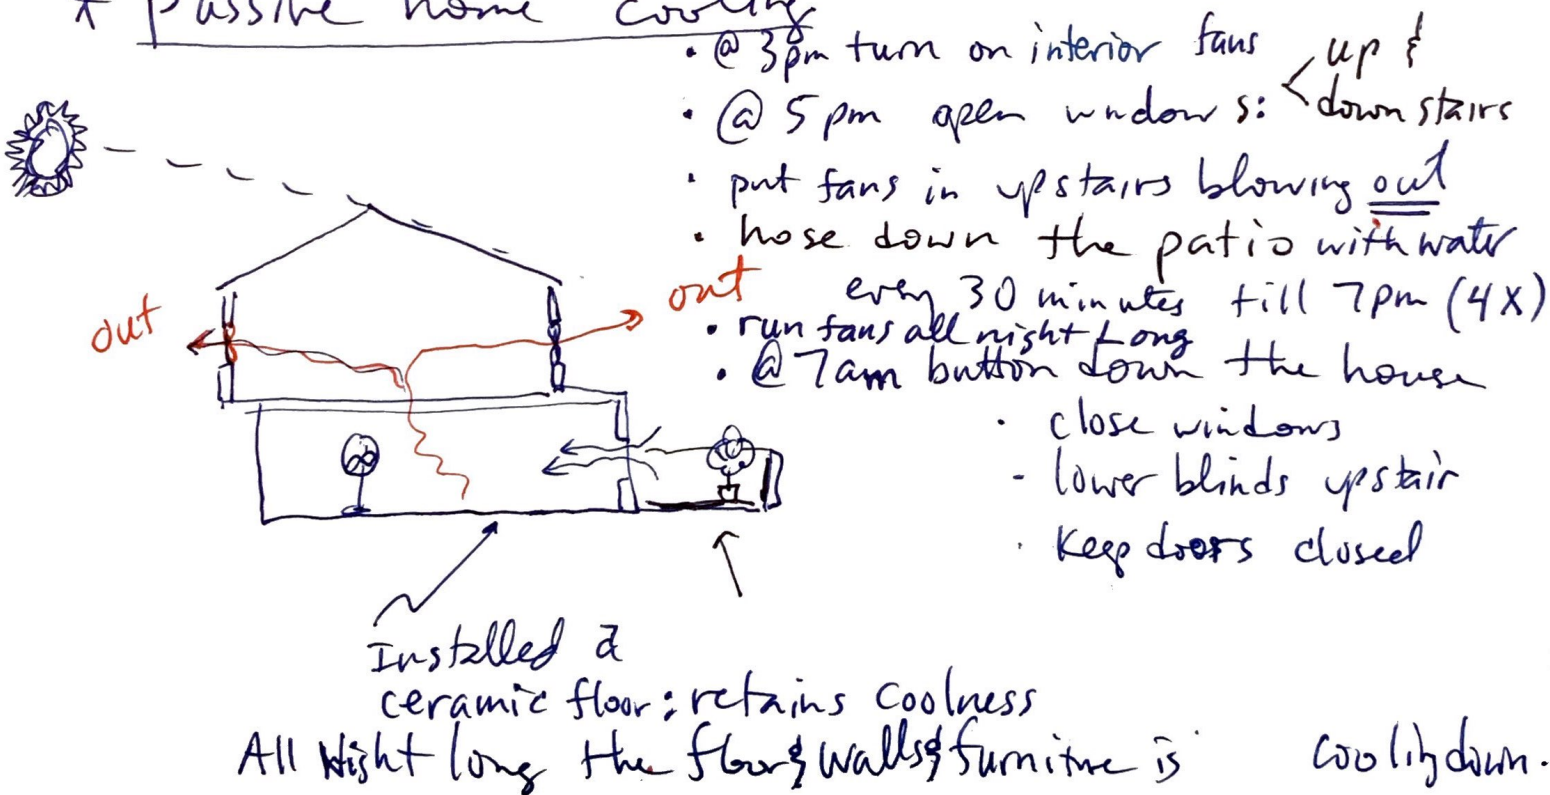 * Passive home cooling
• @ 3pm turn on interior fans
• @ 5pm open windows: < up &
down stairs
• put fans in upstairs blowing out
• hose down the patio with water
every 30 minutes till 7pm (4X)
• run fans all night Long
• @ 7am button down the house
• close windows
- lower blinds upstair
• Keep doors closed
out
out
Installed a
ceramic floor: retains coolness
All Night long the floor & walls & furniture is coolihdown.